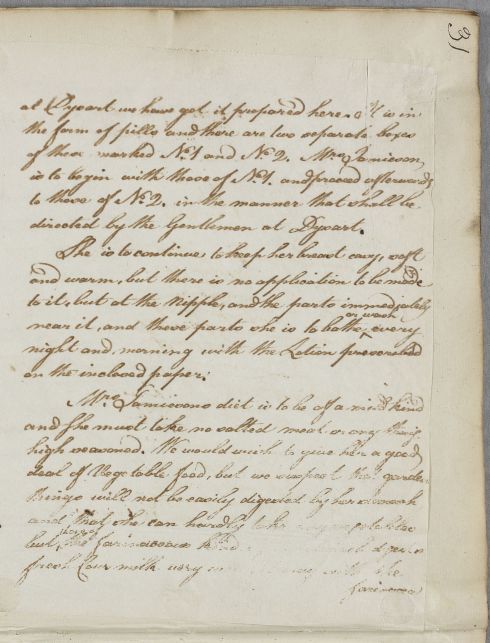 31
at Dysart we have got it prepared here. It is in
the form of pills and there are two separate boxes
of these marked No. 1 and No. 2. Mrs. Jamieson
is to begin with those of No. 1. and proceed afterwards
to those of No. 2. in the manner that shall be
directed by the Gentlemen at Dysart.
She is to continue to keep her breast easy, soft
and warm, but there is no application to be made
to it, but at the Nipple, and the parts immediately
or wash
near it, and these parts she is to bathe every
night and morning with the Lotion prescribed
on the inclosed paper.
Mrs. Jamiesons diet is to be of a mild kind
and she must take no salted meat or any thing
high seasoned. We would wish to give her a good
deal of Vegetable food, but we suspect that garden
things will not be easily digested by her stomach
and that she can hardly take any vegetables
but those of the farinaceous kind
fresh Cow milk very with the
farinacea